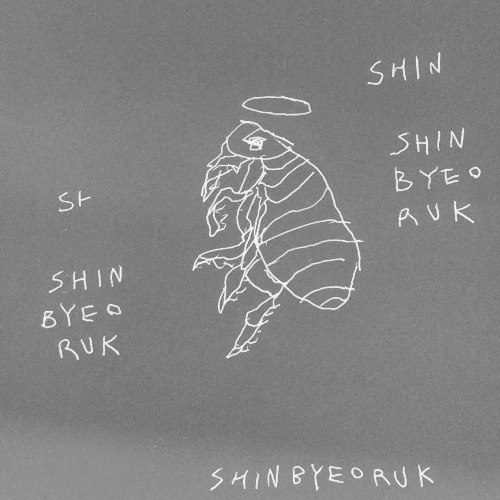 SHIN
SHIN
BYEO
RUK
SH
SHIN
BYEO
RUK
SHINBYEORUK